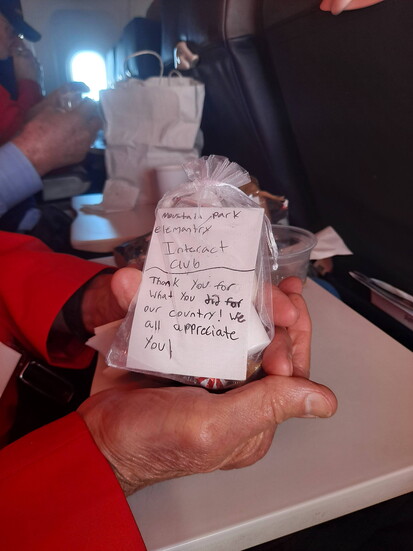 Marshall park
Elementry
Interact
Club
Thank You for
what You did for
our country! We
all appreciate
You!